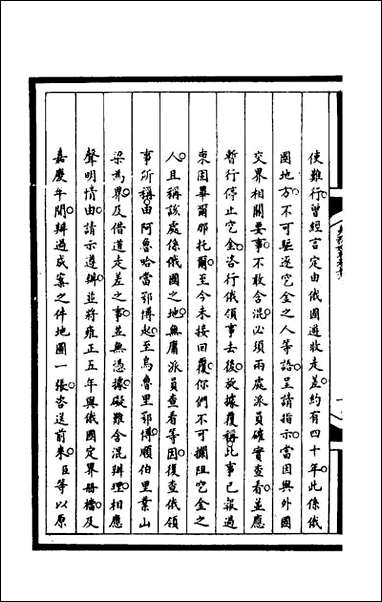 使難行曾經言定由俄國遊牧走差約有四十年此係俄
國地方不可驅逐它金之人等語呈請指示當因與外國
交界相關要事不敢含混必須兩處派員確實查看並應
暫行停止它金咨行俄領事去後玆據覆稱此事已報過
東固畢爾那托爾至今未接回覆你們不可攔阻它金之
人且稱該處係俄國之地無庸派員查看等因復查俄領
事所稱由阿魯哈當鄂博起至烏魯里鄂博順伯里葉山
梁為界及借道走差之事並無憑據礙難含混辦理相應
聲明情由請示遵辦並將雍正五年與俄國定界冊檔及
嘉慶年間辦過成案之件地圖一張咨送前來臣等以原